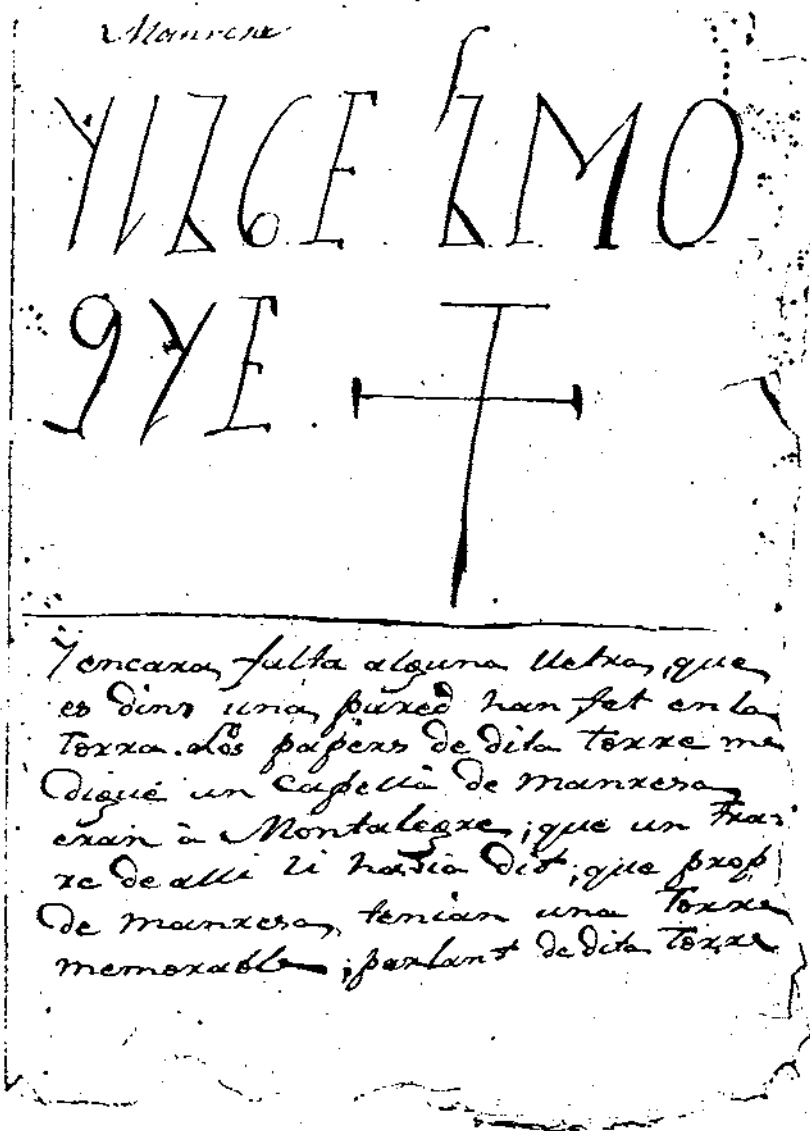 Manresa
YIZGE ZMO
9YE.
Y encara falta alguna lletra, que
es dins una pared han fet en la
Torra. Los papers de dita torre me
digué un Capellà de manresa
eran à Montalegre; que un Fra-
re de alli li havia dit; que prop
de manresa tenian una Torre
memorable; parlant de dita Torre